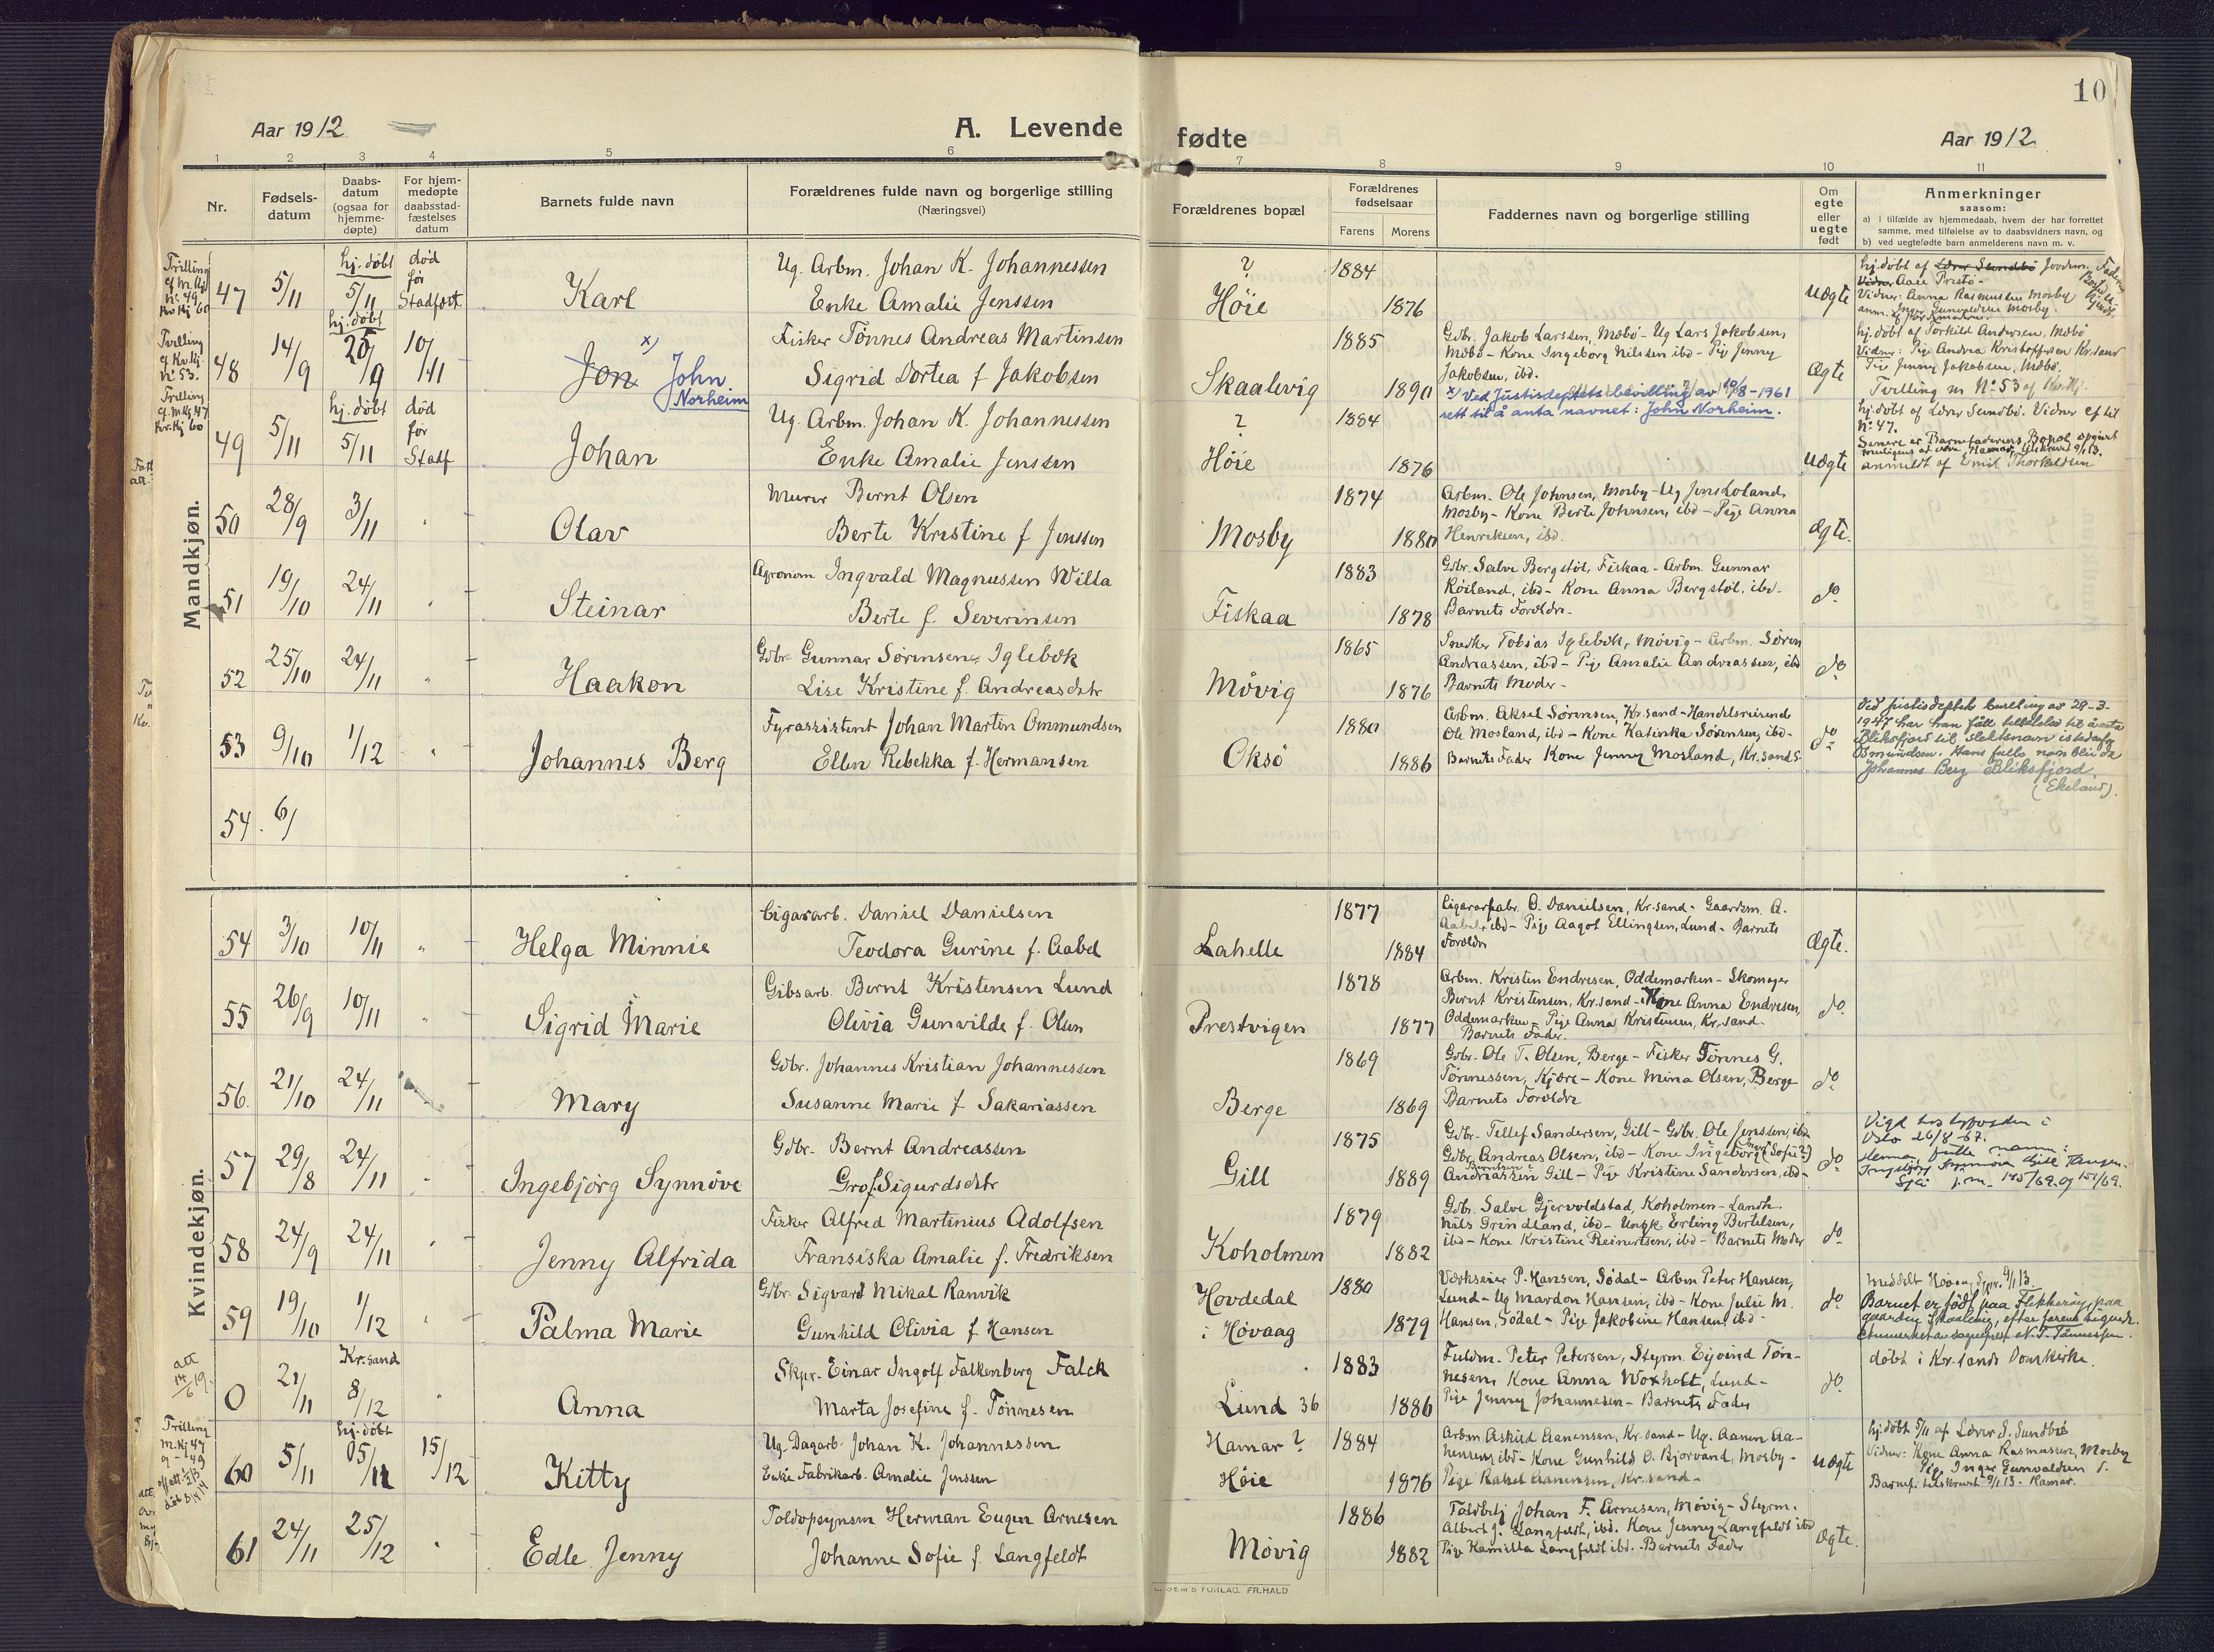 10
Aar 1912
A. Levende fødte
Aar 1912
1 2 3 4 5 6 7 8 9 10 11
Nr.
Fødsels-
datum
Daabs-
datum
(ogsaa for
hjemme-
døpte)
For hjem-
medøpte
daabsstad-
fæstelses
datum
Barnets fulde navn
Forældrenes fulde navn og borgerlige stilling
(Næringsvei)
Forældrenes bopæl
Forældrenes
fødselsaar
Farens Morens
Faddernes navn og borgerlige stilling
Om
egte
eller
uegte
født
Anmerkninger
saasom:
a) i tilfælde av hjemmedaab, hvem der har forrettet
samme, med tilføielse av to daabsvidners navn, og
b) ved uegtefødte barn anmelderens navn m. v.
Mandkjøn.
Trilling
47 5/11 hj. døbt 5/11 død før Stadfæst.
Karl
Ug. Arbm. Johan K. Johannessen
Enke Amalie Jenssen
?
Høie
1884
1876
Uægte
Vidner: Anna Rasmussen Mosby
Tvilling
48 14/9 hj. døbt 25/9 10/11
Jon x) John
Norheim
Fisker Tønnes Andreas Martinsen
Sigrid Dortea f Jakobsen
Skaalevig
1885
1890
Gdbr. Jakob Larssen, Mæbø - Ug Lars Jakobsen,
Mæbø - Kone Ingeborg Nilssen ibd - Pige Jenny
Jakobsen, ibd.
x) Ved Justisdeptets bevilling av 10/8-1961
rett til å anta navnet: John Norheim.
Ægte
hj. døbt af Torkild Andersen, Mæbø
Vidner: Pige Andrea Kristoffersen Kr.sand
Pige Jenny Jakobsen, Mæbø.
Tvilling m No 53 af Kv.Kj.
Trilling
49 5/11 hj. døbt 5/11 død før Stadf
Johan
Ug. Arbm. Johan K. Johannessen
Enke Amalie Jenssen
?
Høie
1884
1876
Uægte
hj. døbt af Lærer Sundbø. Vidner ef til
No 47.
anmeldt af Emil Thorkildsen
50 28/9 3/11
Olav
Murer Bernt Olsen
Berte Kristine f Jenssen
Mosby
1874
1880
Arbm. Ole Johnsen, Mosby - Ug Jens Loland,
Mosby - Kone Berte Johnsen, ibd - Pige Anna
Henriksen, ibd.
Ægte.
51 19/10 24/11
Steinar
Agronom Ingvald Magnussen Willa
Berte f. Severinsen
Fiskaa
1883
1878
Gdbr. Salve Bergstøl, Fiskaa - Arbm. Gunnar
Røiland, ibd - Kone Anna Bergstøl, ibd -
Barnets Forældre -
do
52 25/10 24/11
Haakon
Gdbr. Gunnar Sørensen, Iglebæk
Lise Kristine f. Andreasdtr
Møvig
1865
1876
Snedker Tobias Iglebæk, Møvig - Arbm. Søren
Andreassen, ibd - Pige Amalie Andreassen, ibd
Barnets Moder -
do
53 9/10 1/12
Johannes Berg
Fyrassistent Johan Martin Ommundsen
Ellen Rebekka f. Hermansen
Oksø
1880
1886
Arbm. Aksel Sørensen, Kr.sand - Handelsreisende
Ole Mosland, ibd - Kone Katinka Sørensen, ibd -
Barnets Fader Kone Jenny Mosland, Kr.sand S
do
Ved justisdeptets bevilling av 28-3-
1947 har han fått tillatelse til å anta
Bliksfjord til slektsnavn istedenfor
Osmundsen. Hans fulle navn blir da
Johannes Berg Bliksfjord
(Ekeland).
54. 6/
Kvindekjøn.
54 3/10 10/11
Helga Minnie
Cigararb. Daniel Danielsen
Teodora Gurine f. Aabel
Lahelle
1877
1884
Cigararfabr. O. Danielsen, Kr.sand - Gaardsm. A.
Aabel, ibd - Pige Aagot Ellingsen, Lund - Barnets
Forældre
Ægte.
55 26/9 10/11
Sigrid Marie
Gibsarb. Bernt Kristensen Lund
Olivia Gunvilde f. Olsen
Prestvigen
1878
1877
Arbm. Kristen Endresen, Oddemarken - Skomager
Bernt Kristensen, Kr.sand - Kone Anna Endresen,
Oddemarken - Pige Anna Kristensen, Kr.sand -
Barnets Fader.
do
56. 21/10 24/11
Mary
Gdbr. Johannes Kristian Johannessen
Susanne Marie f Sakariassen
Berge
1869
1869
Gdbr. Ole T. Olsen, Berge - Fisker Tønnes G.
Tønnessen, Kjære - Kone Mina Olsen, Berge
Barnets Forældre
do
57 29/8 24/11
Ingebjørg Synnøve
Gdbr. Bernt Andreassen
Gro f. Sigurdsdtr
Gill
1875
1889
Gdbr. Tellef Sandersen, Gill - Gdbr. Ole Jenssen, ibd
Gdbr. Andreas Olsen, ibd - Kone Ingeborg (Sofie?)
Andreassen Gill - Pige Kristine Sandersen, ibd -
do
Oslo 26/8-67.
Hennes fulle navn:
58 24/9 24/11
Jenny Alfrida
Fisker Alfred Martinius Adolfsen
Fransiska Amalie f. Fredriksen
Koholmen
1879
1882
Gdbr. Salve Gjervoldstad, Koholmen - Landh.
Nils Grindland, ibd - Ungk Erling Bertelsen,
ibd - Kone Kristine Reinertsen, ibd - Barnets Moder
do
59 19/10 1/12
Palma Marie
Gdbr. Sigvart Mikal Ranvik
Gunhild Olivia f Hansen
Hovdedal
i Høvaag
1880
1879
Værkseier P. Hansen, Sødal - Arbm Peter Hansen,
Lund - Ug Mardon Hansen, ibd - Kone Julie M.
Hansen, Sødal - Pige Jakobine Hansen, ibd -
do
Barnet er født paa Flekkerøy, paa
gaarden Skaalevig, efter farens sigende.
att
14/6 19.
0 21/11 Kr.sand 8/12
Anna
Skpr. Einar Ingolf Falkenberg Falck
Marta Josefine f. Tønnesen
Lund 36
1883
1886
Fuldm. Peter Petersen, Styrm. Eyvind Tøn-
nesen, Kone Anna Woxholt, Lund -
Pige Jenny Johannesen - Barnets Fader
do
døbt i Kr.sands Domkirke.
Trilling
60 5/11 hj. døbt 05/11 15/12
Kitty
Ug. Dagarb. Johan K. Johannessen
Enke Fabrikarb. Amalie Jenssen
Hamar ?
Høie
1884
1876
Arbm Askild Aanensen, Kr.sand - Ug. Aanen Aa-
nensen, ibd - Kone Gunhild O. Bjorvand, Mosby -
Pige Rakel Aanensen, Kr.sand -
uægte
hj. døbt 5/11 af Lærer S. Sundbø
Vidner: Kone Anna Rasmussen, Mosby
Pige Inger Gunvaldsen do.
61 24/11 25/12
Edle Jenny
Toldopsynsm Herman Eugen Arnesen
Johanne Sofie f. Langfeldt
Møvig
1886
1882
Toldbetj Johan F. Arnesen, Møvig - Styrm.
Albert J. Langfeldt, ibd. Kone Jenny Langfeldt ibd
Pige Kamilla Langfeldt ibd. - Barnets Fader
Ægte.
FORLAG. FR. HALD